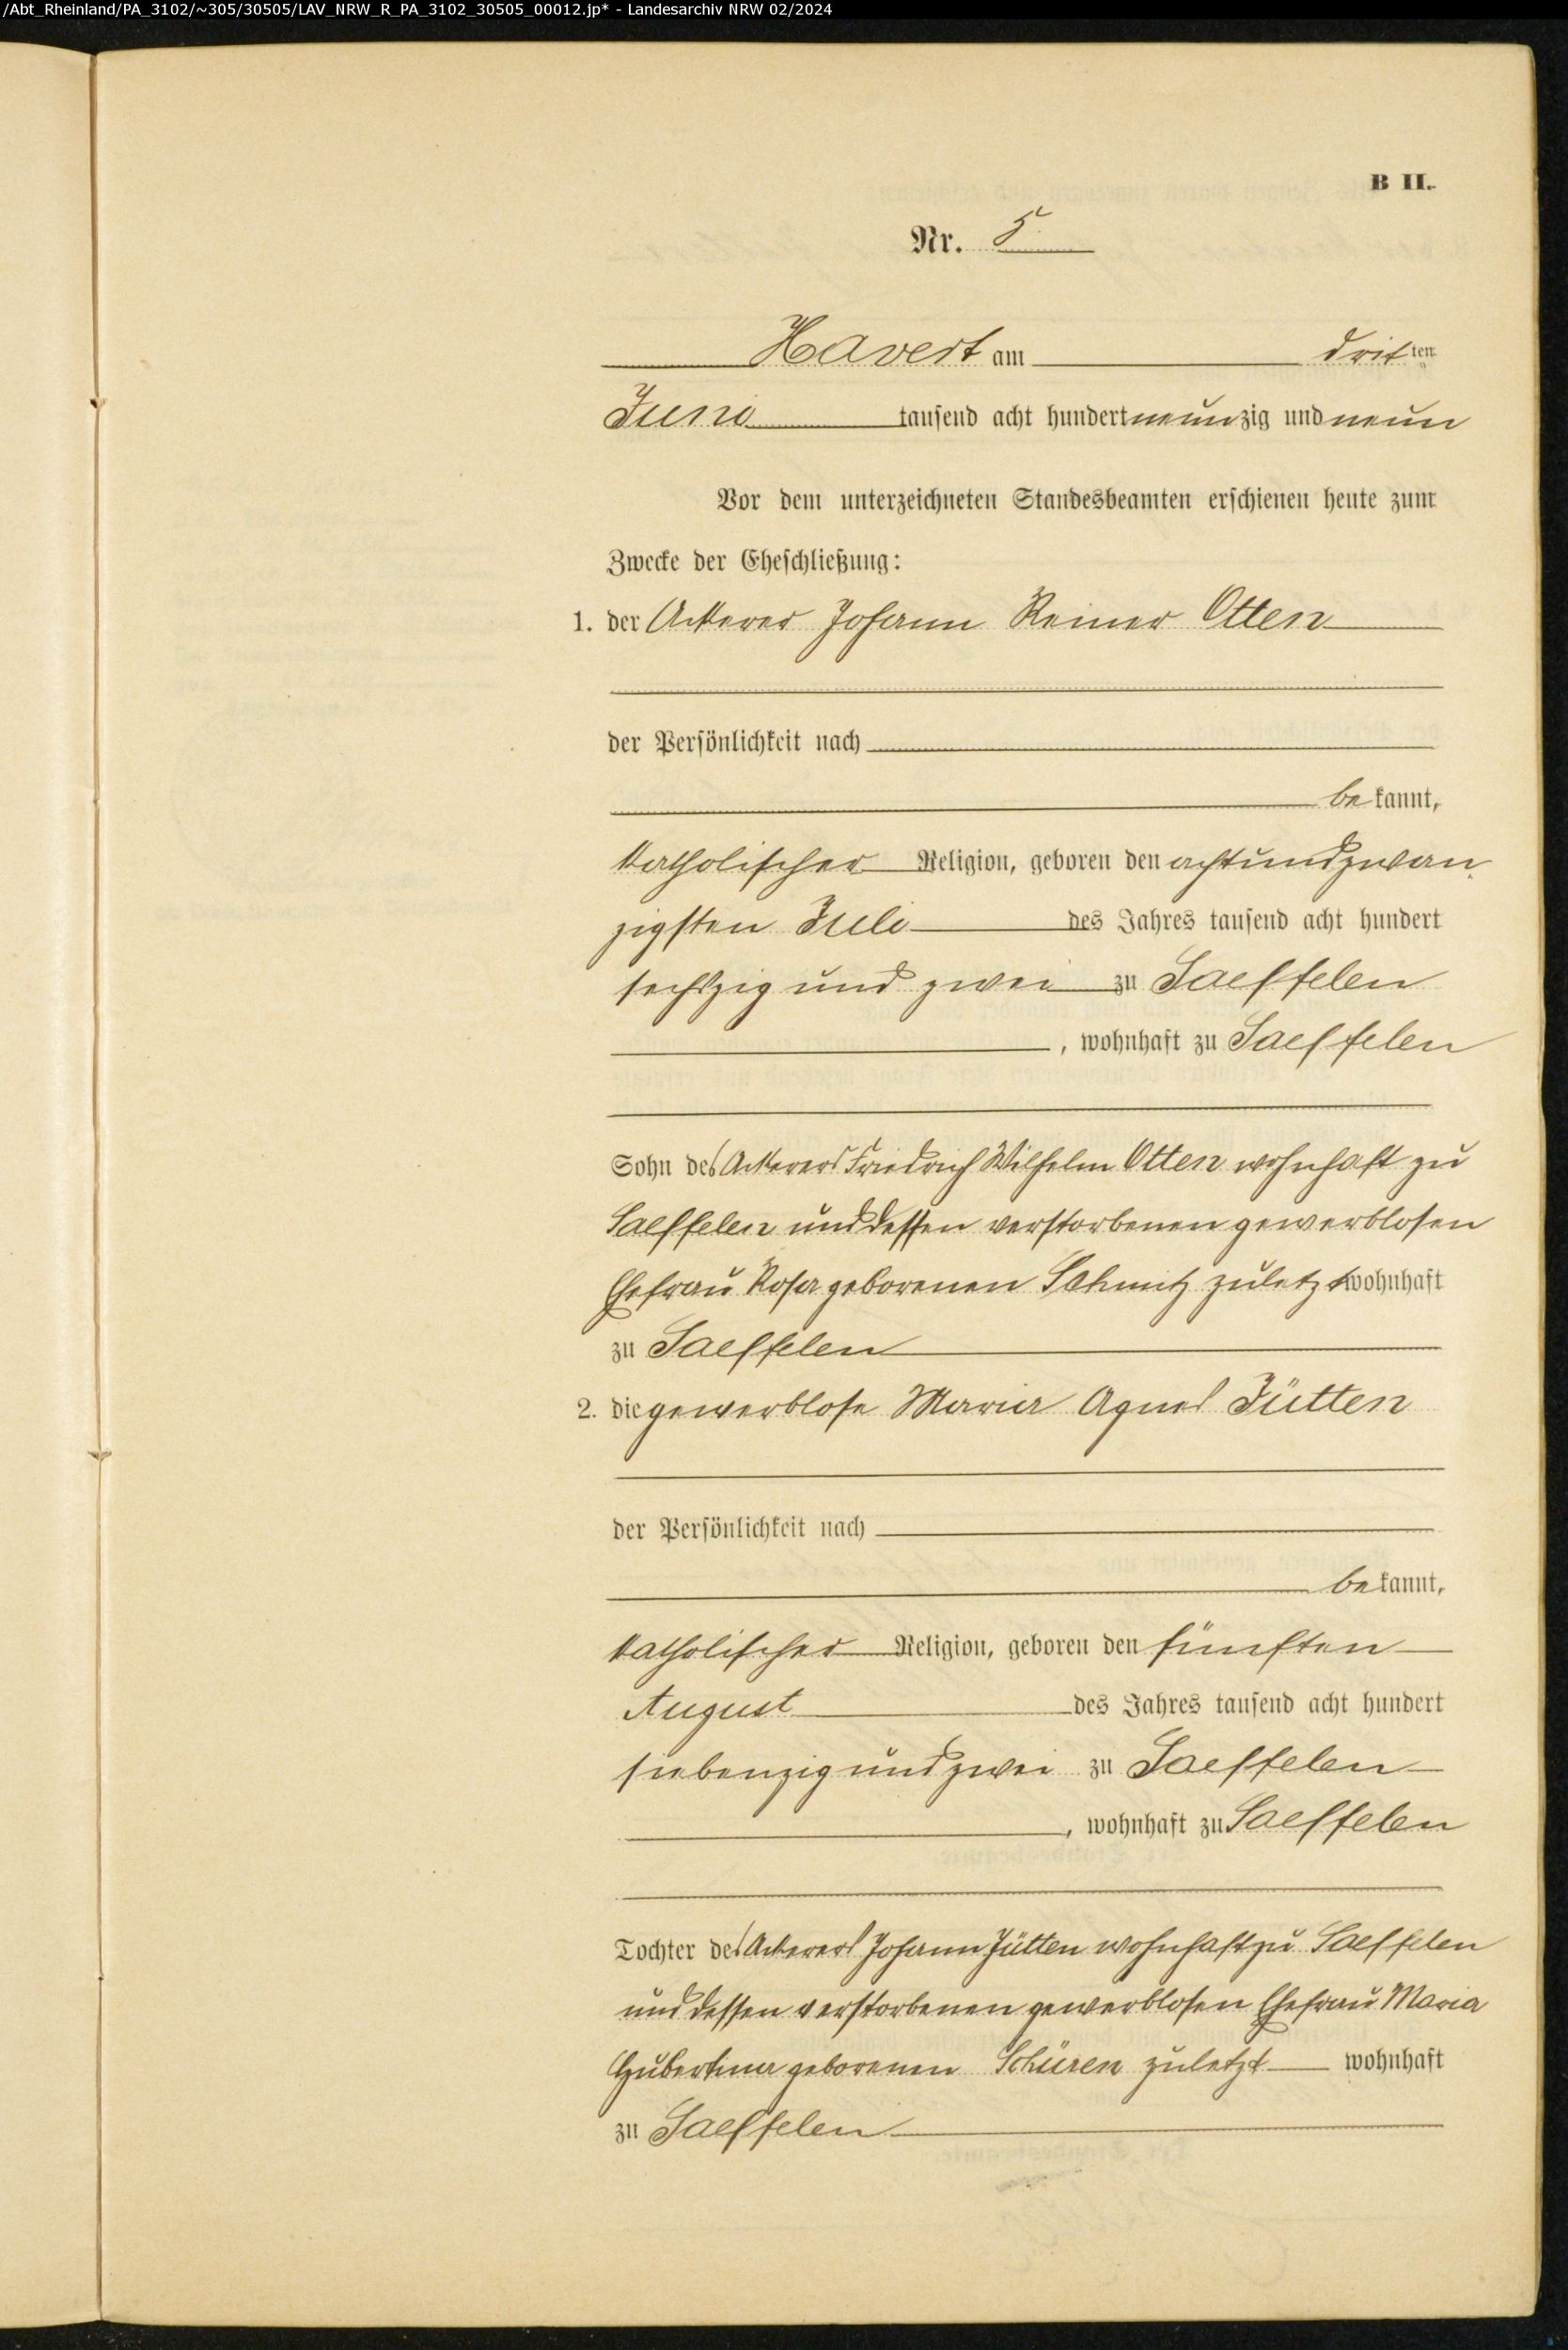 /Abt_Rheinland/PA_3102/~305/30505/LAV_NRW_R_PA_3102_30505_00012.jp* - Landesarchiv NRW 02/2024
B II.
Nr. 5
Havert am dritten
Juni tausend acht hundert neunzig und neun
Vor dem unterzeichneten Standesbeamten erschienen heute zum
Zwecke der Eheschließung:
1. der Ackerer Johann Reiner Otten
der Persönlichkeit nach
bekannt,
katholischer Religion, geboren den achtundzwan
zigsten Juli des Jahres tausend acht hundert
sechszig und zwei zu Saeffelen
, wohnhaft zu Saeffelen
Sohn des Ackerers Friedrich Wilhelm Otten wohnhaft zu
Saeffelen und dessen verstorbenen gewerblosen
Ehefrau Rosa geborenen Schmitz zuletzt wohnhaft
zu Saeffelen
2. die gewerblose Maria Agnes Jütten
der Persönlichkeit nach
bekannt,
katholischer Religion, geboren den fünften
August des Jahres tausend acht hundert
siebenzig und zwei zu Saeffelen
, wohnhaft zu Saeffelen
Tochter des Ackerers Johann Jütten wohnhaft zu Saeffelen
und dessen verstorbenen gewerblosen Ehefrau Maria
Hubertina geborenen Schüren zuletzt wohnhaft
zu Saeffelen